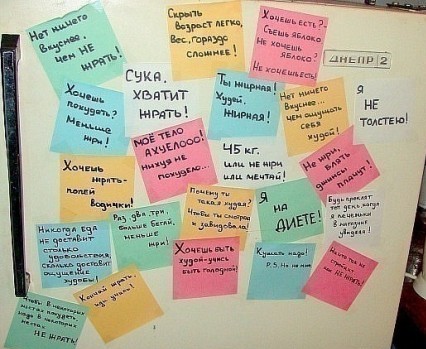 Нет ничего
вкуснее,
чем НЕ
ЖРАТЬ!
Скрыть
возраст легко,
Вес, гораздо
сложнее!
Хочешь есть?
Съешь яблоко
Не хочешь
яблоко?
Не хочешь есть!
ДНЕПР 2
Хочешь
похудеть?
Меньше
жри!
СУКА,
ХВАТИТ
ЖРАТЬ!
Ты жирная!
Худей.
ЖИРНАЯ!
Нет ничего
вкуснее...
чем ощущать
себя
худой!
Я
НЕ
ТОЛСТЕЮ!
МОЁ ТЕЛО
АХУЕЛООО!
нихуя не
похудело...
45 кг.
или не жри
или мечтай!
Не жри,
блять
джинсы
плачут!
Хочешь
жрать-
попей
водички!
Почему ты
такая худая?
Чтобы ты смотрела
и завидовала!
Я
НА
ДИЕТЕ!
Будь проклят
тот день, когда
я печеньки
в магазине
увидела!
Никогда еда
не доставит
столько
удовольствия,
сколько доставит
ощущение
худобы!
Раз, два, три,
больше бегай,
меньше
жри!
Хочешь быть
худой-учись
быть голодной!
Кушать надо!
P.S. Но не мне
НЕ ЖРАТЬ!
Чтобы в некоторых
местах похудеть,
надо в некоторых
местах
НЕ ЖРАТЬ!
Кончай жрать,
иди учать!